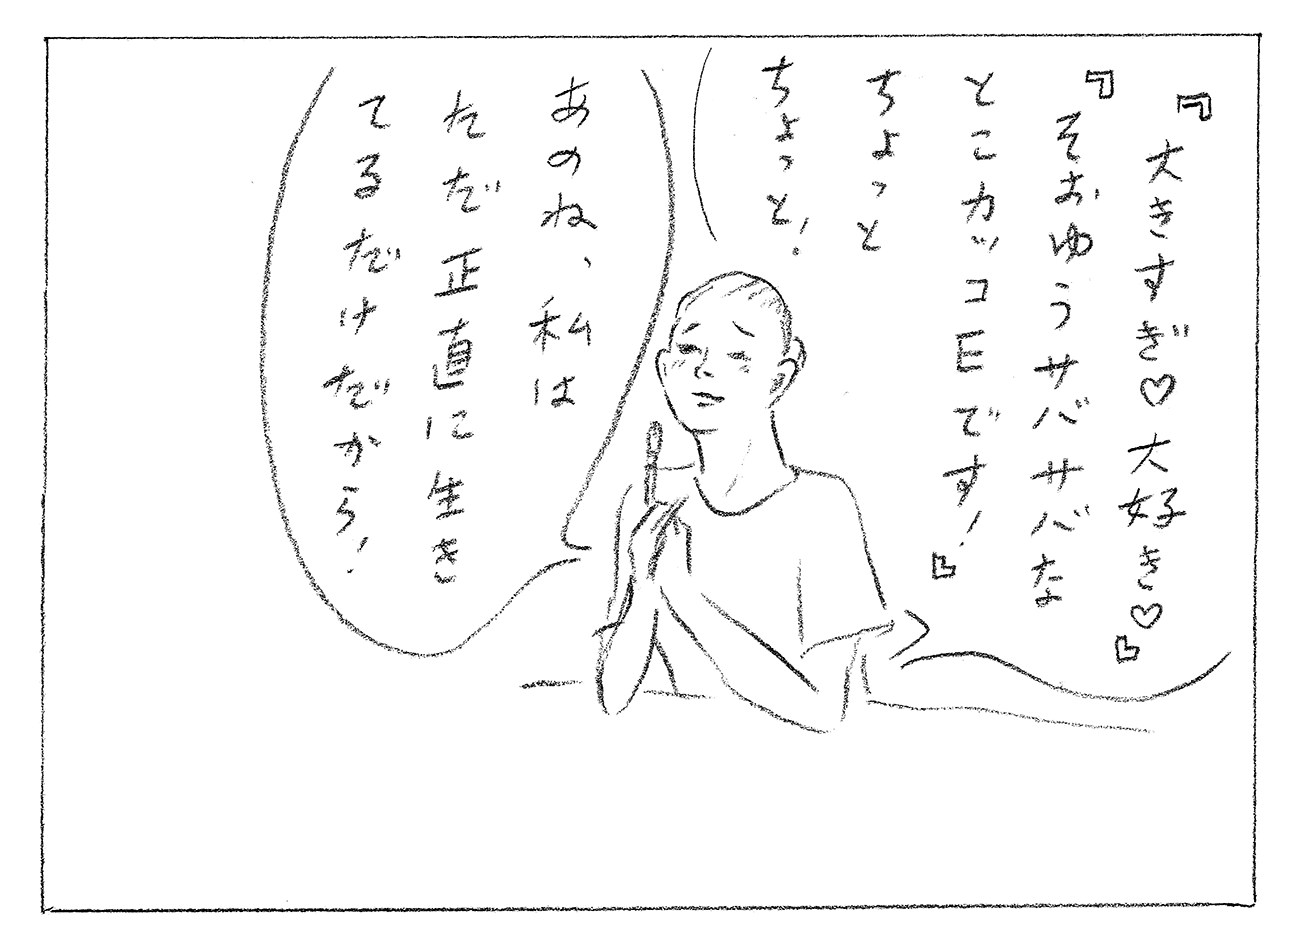 『大きすぎ♡大好き♡』
『そおゆうサバサバな
とこカッコEです！』
ちょっと
ちょっと！
あのね、私は
ただ正直に生き
てるだけだから！